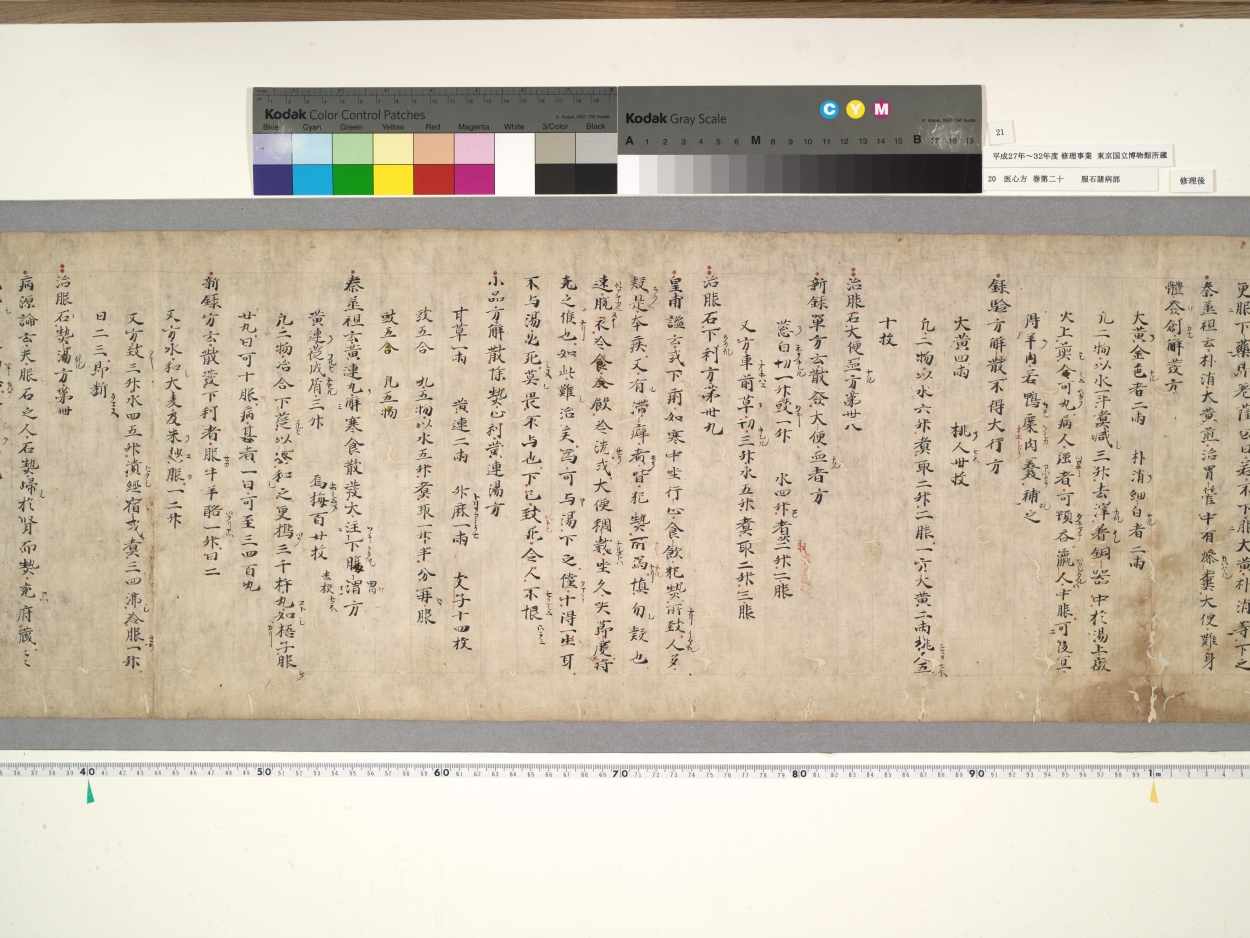 Kodak Color Control Patches
Blue Cyan Green Yellow Red Magenta White 3/Color Black
Kodak Gray Scale
C Y M
A 1 2 3 4 5 6 M 8 9 10 11 12 13 14 15 B 17 18 19
21
平成27年～32年度 修理事業 東京国立博物館所蔵
20 医心方 巻第二十 服石諸病部
修理後
秦丞祖云朴消大黄煎治胃管中有燥糞大便難身
體發創解發方
大黄金色者二兩 朴消細白者二兩
凡二物以水一斗煮減三升去滓著銅器中於湯上微
火上煎令可丸病人强者可頓吞羸人中服可後
用羊肉若鴨麋肉羹補之
錄驗方解散不得大行方
大黄四兩 桃人卅枚
凡二物以水六升煮取二升二服一方大黄二兩桃人五
十枚
治服石大便血方第卅八
新錄單方云散發大便血者方
葱白切一升豉一升 水四升煮二升二服
又方車前草切三升水五升煮取二升三服
治服石下利方第卅九
皇甫謐云或下利如寒中坐行止食飲犯熱所致人多
疑是本疾又有滯癖者皆犯熱所爲慎勿疑也
速脫衣冷食冷飲冷洗或大便稠數坐久失節度將
死之候也如此難治矣爲可与湯下之儻十得一生耳
不与湯必死莫畏不与也下已致死令人不恨
小品方解散除熱止利黄連湯方
甘草一兩 黄連二兩 升麻一兩 支子十四枚
豉五合 凡五物以水五升煮取一升半分再服
豉五合 凡五物
秦丞祖云黄連丸解寒食散發大注下腸渭方
胃
黄連篵成屑三升 烏梅百廿枚 去核
凡二物冶合下篵以蜜和之更擣三千杵丸如梧子服
廿丸日可十服病甚者一日可至三四百丸
新錄方云散發下利者服牛羊酪一升日二
又方水和大麦麨米麨服一二升
又方豉三升水四五升漬經宿或煮三四沸冷服一升
日二三即斷
治服石熱渴方第卌
病源論云夫服石之人石熱歸於腎而熱充府藏
40 50 60 70 80 90 1m